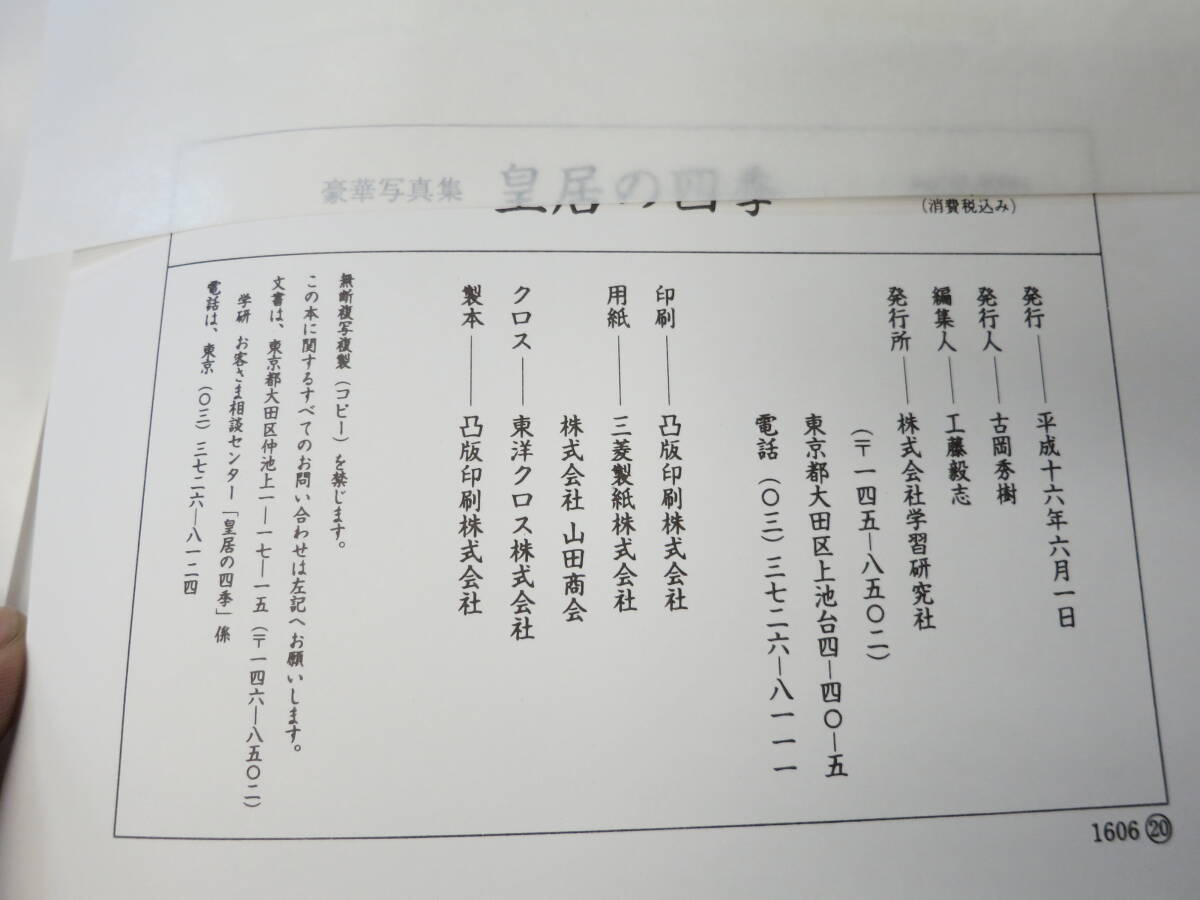 豪華写真集 皇居の四季
(消費税込み)
発行――平成十六年六月一日
発行人――古岡秀樹
編集人――工藤毅志
発行所――株式会社学習研究社
(〒一四五―八五〇二)
東京都大田区上池台四―四〇―五
電話(〇三)三七二六―八一一一
印刷――凸版印刷株式会社
用紙――三菱製紙株式会社
株式会社 山田商会
クロス――東洋クロス株式会社
製本――凸版印刷株式会社
無断複写複製(コピー)を禁じます。
この本に関するすべてのお問い合わせは左記へお願いします。
文書は、東京都大田区仲池上一―一七―一五(〒一四六―八五〇二)
学研 お客さま相談センター「皇居の四季」係
電話は、東京(〇三)三七二六―八一二四
1606⑳